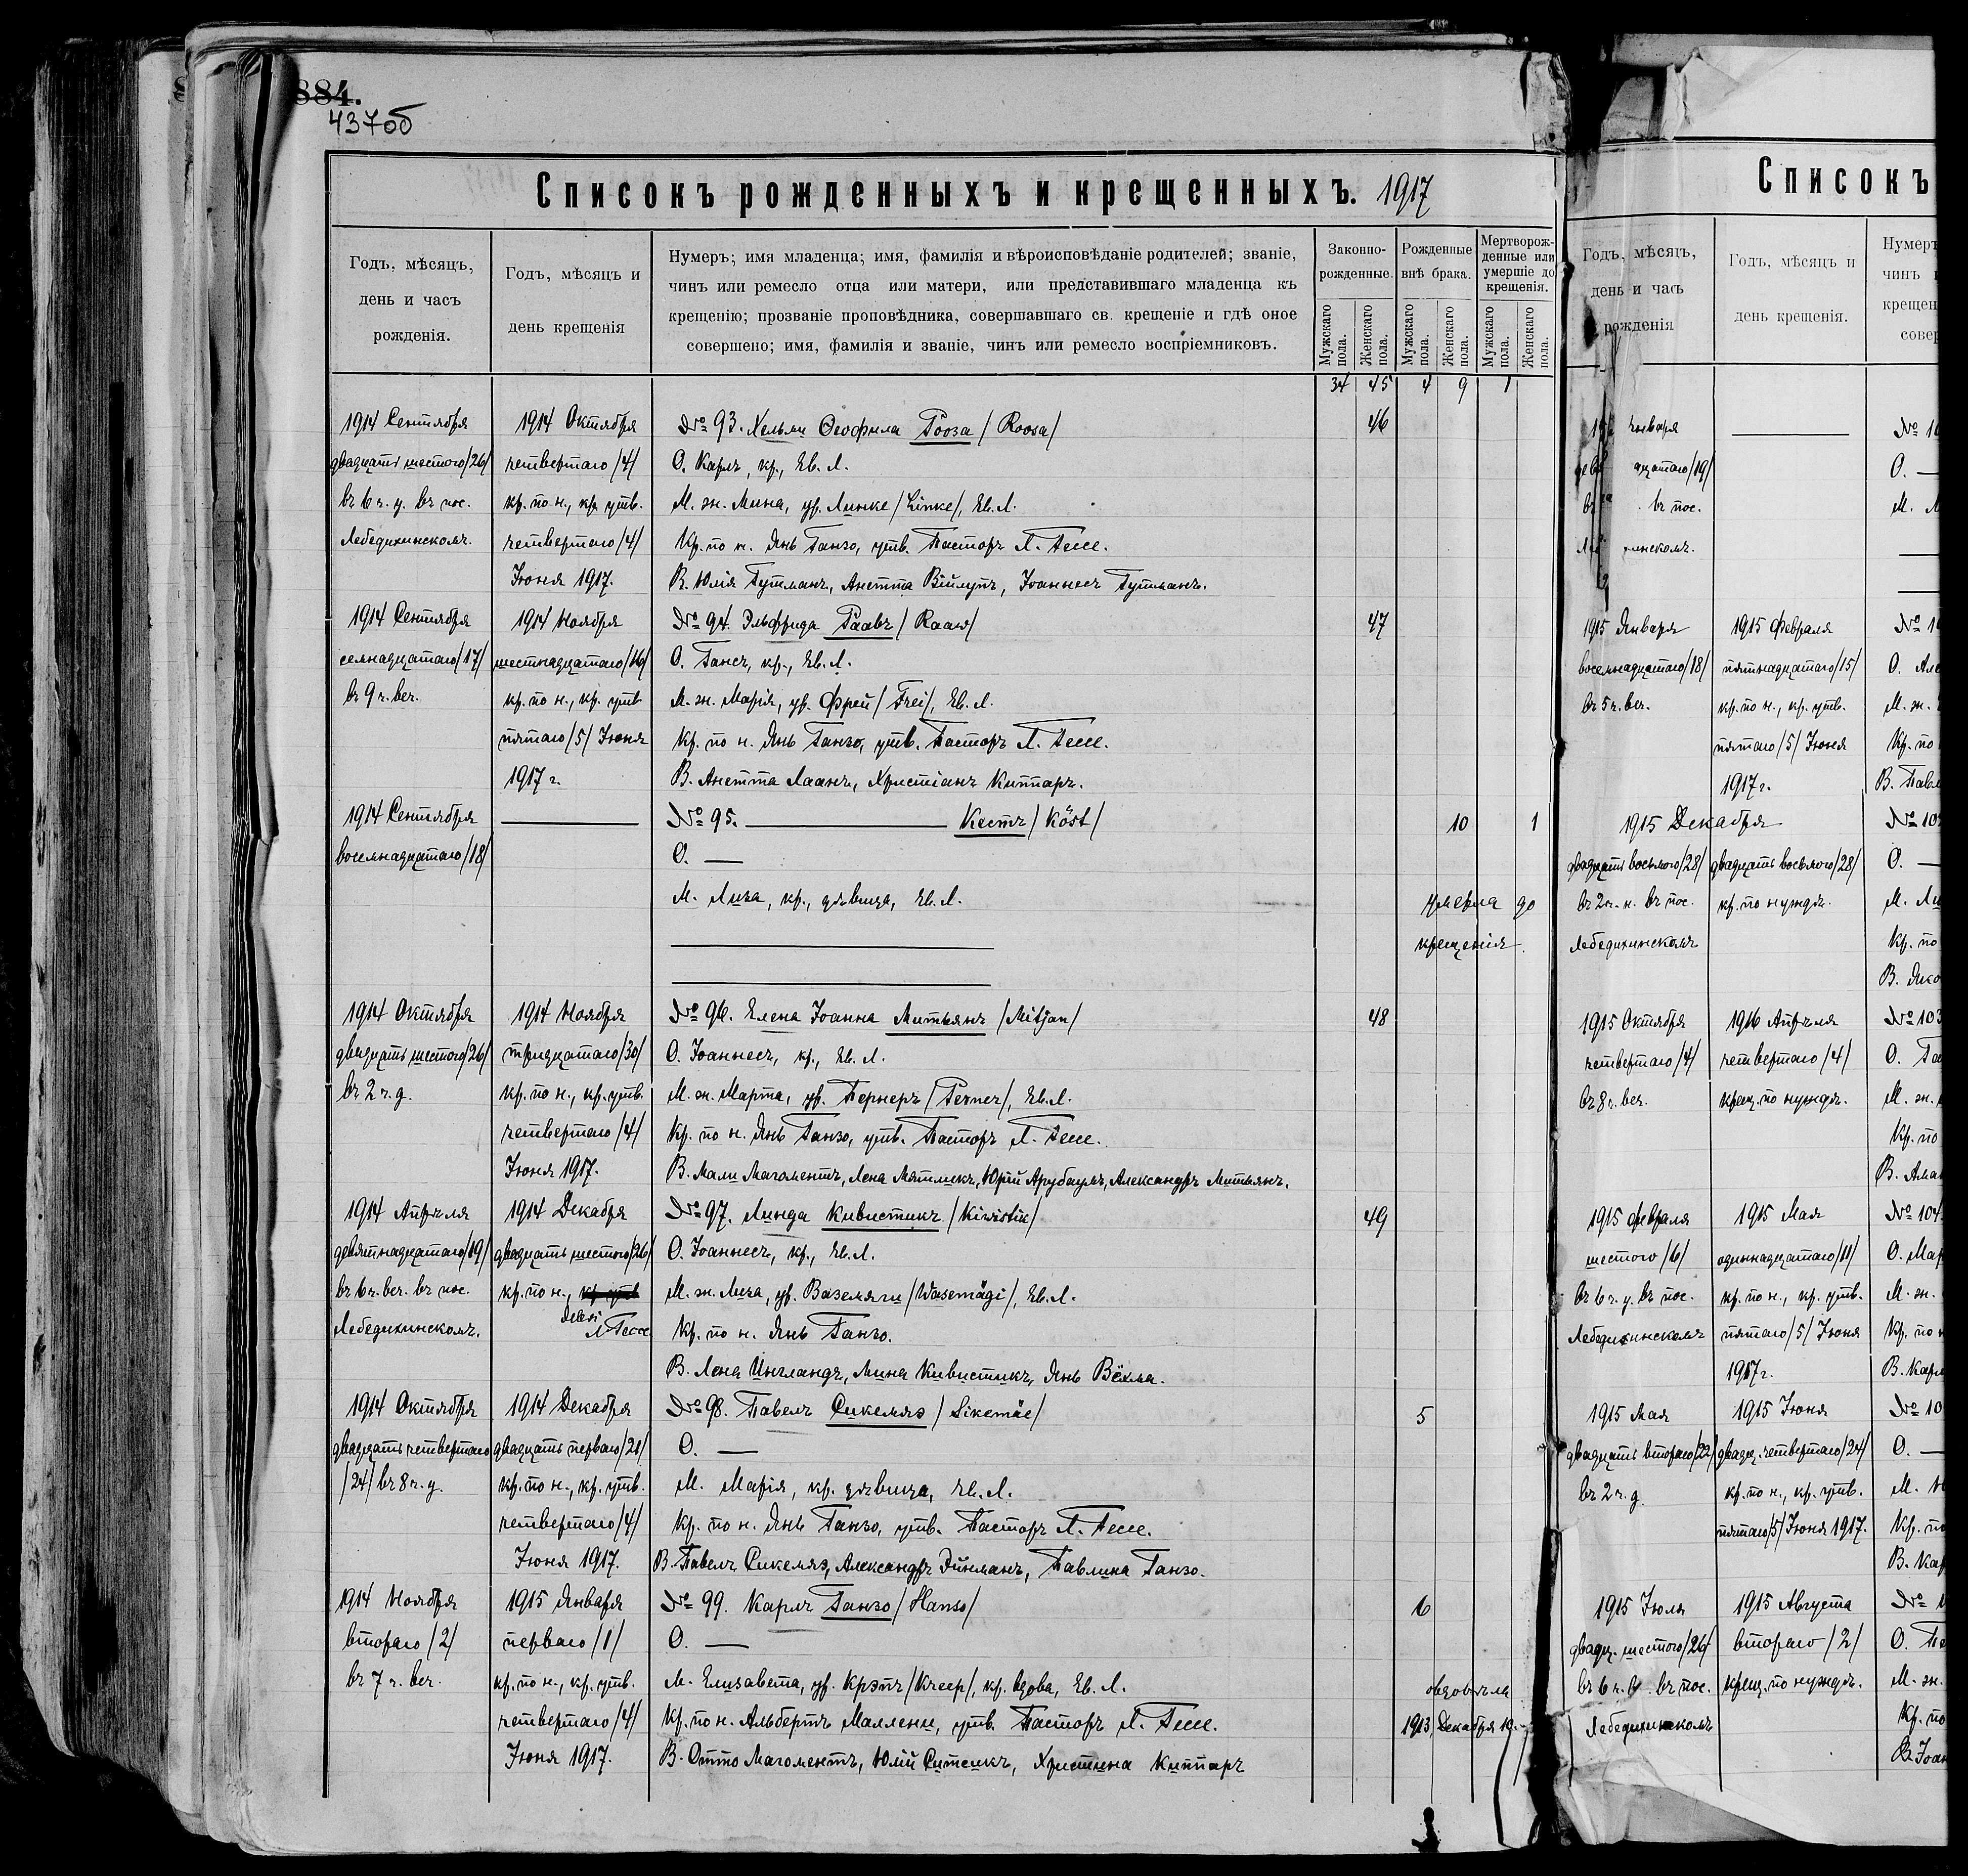 884.
437об
Списокъ рожденныхъ и крещенныхъ. 1917
Годъ, мѣсяцъ, день и часъ рожденія.
Годъ, мѣсяцъ и день крещенія
Нумеръ; имя младенца; имя, фамилія и вѣроисповѣданіе родителей; званіе,
чинъ или ремесло отца или матери, или представившаго младенца къ
крещенію; прозваніе проповѣдника, совершавшаго св. крещеніе и гдѣ оное
совершено; имя, фамилія и званіе, чинъ или ремесло воспріемниковъ.
Законно-рожденные.
Рожденные внѣ брака.
Мертворож-денные или умершіе до крещенія.
Мужскаго пола. Женскаго пола. Мужскаго пола. Женскаго пола. Мужскаго пола. Женскаго пола.
34 45 4 9 1
1914 Сентября 1914 Октября № 93. Хельми Ѳеофила Рооза /Roosa/ 46
двадцать шестого /26/ четвертаго /4/ О. Карлъ, кр., Ев. Л.
въ 6 ч. у. въ пос. кр. по н., кр. утв. М. ж. Мина, ур. Линке /Linke/, Ев. Л.
Лебедихинскомъ. четвертаго /4/ Кр. по н. Янъ Ганзо, утв. Пасторъ Л. Гессе.
Іюня 1917. В. Юлія Гутманъ, Анетта Війлупъ, Іоаннесъ Гутманъ.
1914 Сентября 1914 Ноября № 94. Эльфрида Раавъ /Raaw/ 47
семнадцатаго /17/ шестнадцатаго /16/ О. Гансъ, кр., Ев. Л.
въ 9 ч. веч. кр. по н., кр. утв. М. ж. Марія, ур. Фрей /Frei/, Ев. Л.
пятаго /5/ Іюня Кр. по н. Янъ Ганзо, утв. Пасторъ Л. Гессе.
1917 г. В. Анетта Лаанъ, Христіанъ Киппаръ.
1914 Сентября № 95. Кестъ /Köst/ 10 1
восемнадцатаго /18/ О. —
М. Лиза, кр., дѣвица, Ев. Л. умерла до
крещенія.
1914 Октября 1914 Ноября № 96. Елена Іоанна Митьянъ /Mitjan/ 48
двадцать шестого /26/ тридцатаго /30/ О. Іоаннесъ, кр., Ев. Л.
въ 2 ч. д. кр. по н., кр. утв. М. ж. Марта, ур. Пернеръ /Perner/, Ев. Л.
четвертаго /4/ Кр. по н. Янъ Ганзо, утв. Пасторъ Л. Гессе.
Іюня 1917. В. Мали Магоментъ, Лена Мятликъ, Юрій Арубаумъ, Александръ Митьянъ.
1914 Апрѣля 1914 Декабря № 97. Линда Кивистикъ /Kiwistik/ 49
девятнадцатаго /19/ двадцать шестого /26/ О. Іоаннесъ, кр., Ев. Л.
въ 6 ч. веч. въ пос. кр. по н., кр. утв. М. ж. Лиза, ур. Ваземяги /Wasemägi/, Ев. Л.
Лебедихинскомъ. Л. Гессе Кр. по н. Янъ Ганзо.
В. Лена Ингландъ, Мина Кивистикъ, Янъ Вёхма.
1914 Октября 1914 Декабря № 98. Павелъ Сикемяэ /Sikemäe/ 5
двадцать четвертаго двадцать перваго /21/ О. —
/24/ въ 8 ч. у. кр. по н., кр. утв. М. Марія, кр. дѣвица, Ев. Л.
четвертаго /4/ Кр. по н. Янъ Ганзо, утв. Пасторъ Л. Гессе.
Іюня 1917. В. Павелъ Сикемяэ, Александръ Эйнманъ, Павлина Ганзо.
1914 Ноября 1915 Января № 99. Карлъ Ганзо /Hanso/ 6
второго /2/ перваго /1/ О. —
въ 7 ч. веч. кр. по н., кр. утв. М. Елизавета, ур. Крэпъ /Kreep/, кр. вдова, Ев. Л. овдовѣла
четвертаго /4/ Кр. по н. Альбертъ Маллени, утв. Пасторъ Л. Гессе. 1913, Декабря 19.
Іюня 1917. В. Отто Магоментъ, Юлій Ситсикъ, Христина Киппаръ
Списокъ
Годъ, мѣсяцъ, день и часъ рожденія
Годъ, мѣсяцъ и день крещенія.
Января
/19/
въ пос.
1915 Января 1915 Февраля
восемнадцатаго /18/ пятнадцатаго /15/
въ 5 ч. веч. кр. по н., кр. утв. М. ж.
пятаго /5/ Іюня Кр. по
1917 г.
1915 Декабря
двадцать восьмого /28/ двадцать восьмого /28/ О. —
въ 2 ч. н. въ пос. кр. по нуждѣ.
Лебедихинскомъ Кр. по
1915 Октября 1916 Апрѣля № 103
четвертаго /4/ четвертаго /4/
въ 8 ч. веч. крещ. по нуждѣ. М. ж.
Кр. по
1915 Февраля 1915 Мая № 104.
шестого /6/ одиннадцатаго /11/
въ 6 ч. у. въ пос. кр. по н., кр. утв. М. ж.
Лебедихинскомъ пятаго /5/ Іюня Кр. по н
1917 г.
1915 Мая 1915 Іюня
двадцать второго /22/ двадц. четвертаго /24/ О. —
въ 2 ч. д. кр. по н., кр. утв.
пятаго /5/ Іюня 1917.
1915 Іюля 1915 Августа
двадц. шестого /26/ второго /2/
въ 6 ч. въ пос. крещ. по нуждѣ. М. ж.
Лебедихинскомъ Кр. по